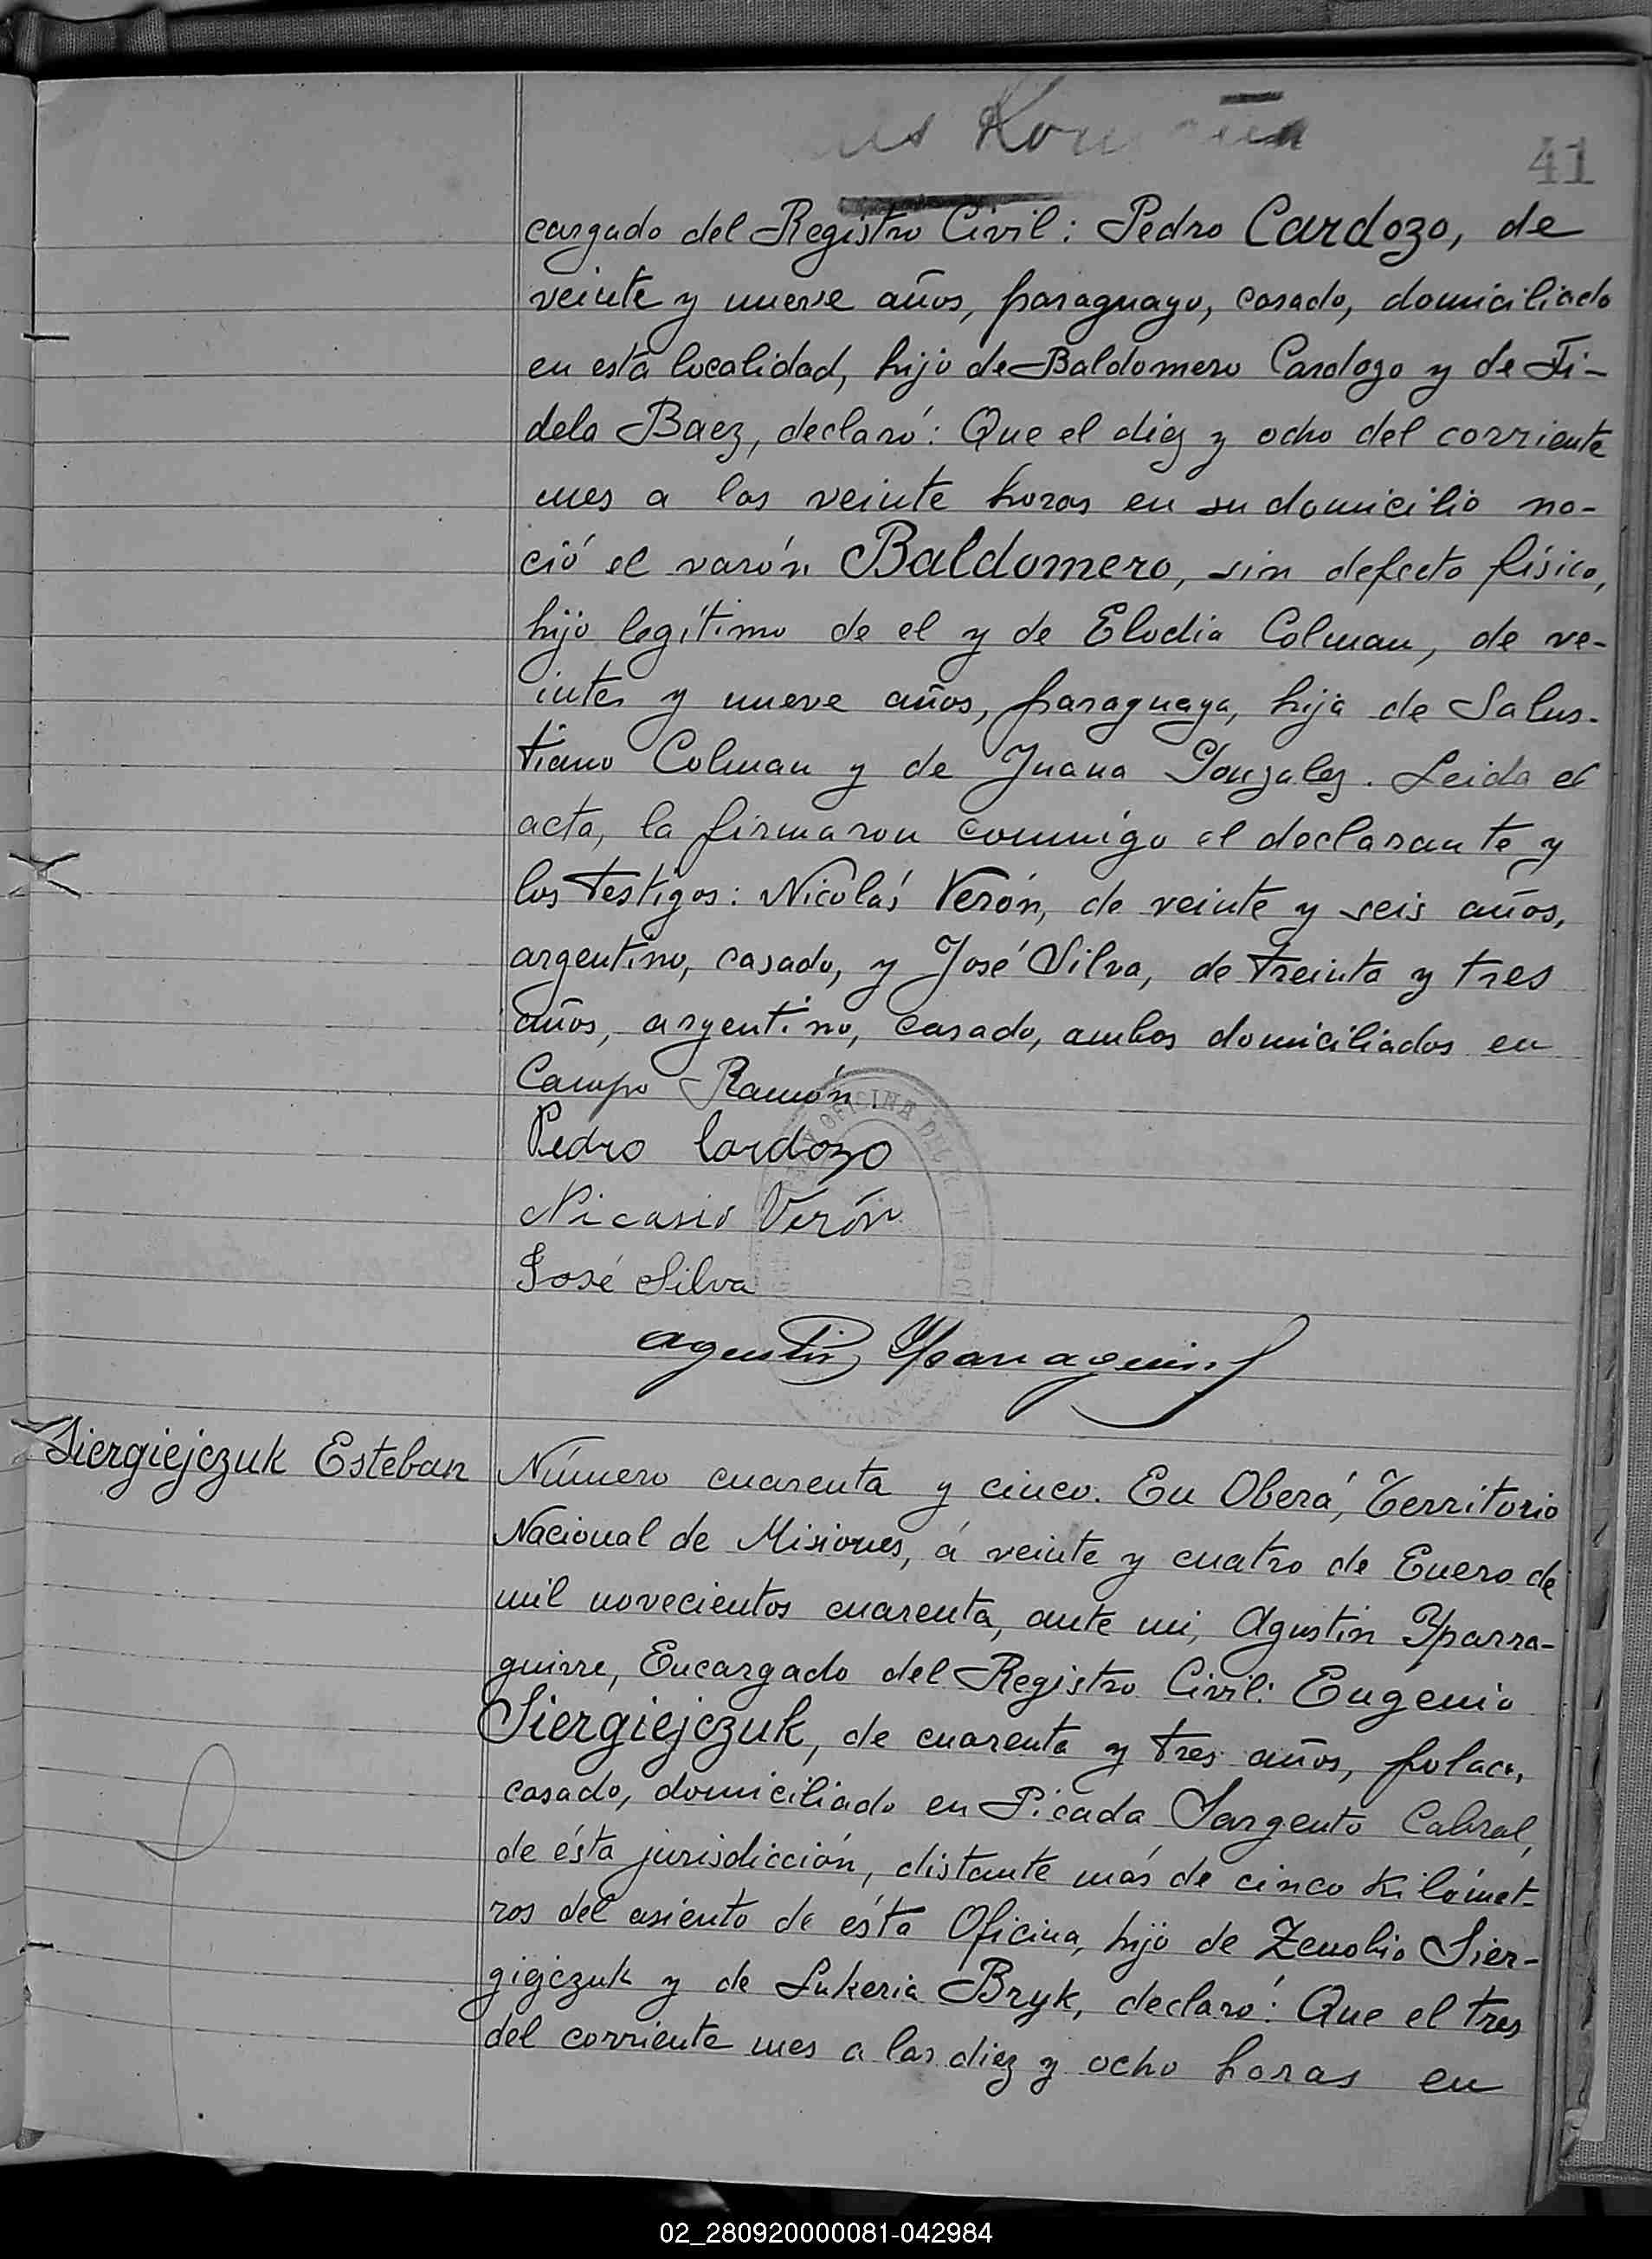 41
cargado del Registro Civil: Pedro Cardozo, de
veinte y nueve años, paraguayo, casado, domiciliado
en esta localidad, hijo de Baldomero Cardozo y de Fi-
dela Baez, declaró: Que el diez y ocho del corriente
mes a las veinte horas en su domicilio na-
ció el varón Baldomero, sin defecto físico,
hijo legítimo de el y de Elodia Colman, de ve-
inte y nueve años, paraguaya, hija de Salus-
tiano Colman y de Juana Gonzalez. Leida el
acta, la firmaron conmigo el declarante y
los testigos: Nicolás Verón, de veinte y seis años,
argentino, casado, y José Silva, de treinta y tres
años, argentino, casado, ambos domiciliados en
Campo Ramón.
Pedro Cardozo
Nicasio Verón
José Silva
Agustin Yparraguirre
Siergiejczuk Esteban
Número cuarenta y cinco. En Oberá, Territorio
Nacional de Misiones, á veinte y cuatro de Enero de
mil novecientos cuarenta, ante mi, Agustin Yparra-
guirre, Encargado del Registro Civil: Eugenio
Siergiejczuk, de cuarenta y tres años, polaco,
casado, domiciliado en Picada Sargento Cabral,
de ésta jurisdicción, distante más de cinco Kilómet-
ros del asiento de ésta Oficina, hijo de Zenobio Sier-
giejczuk y de Lukeria Bryk, declaró: Que el tres
del corriente mes a las diez y ocho horas en
02_280920000081-042984